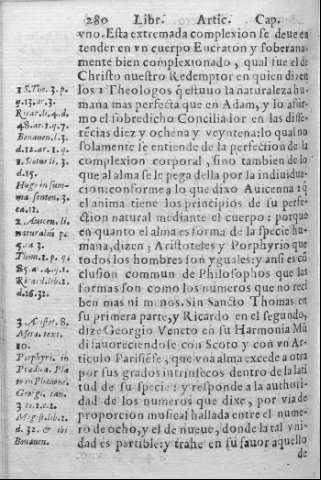 280 Libr. Artic. Cap.
vno. Esta extremada complexion se deue en
tender en vn cuerpo Eucraton y soberana-
mente bien complexionado, qual fue el de
Christo nuestro Redemptor en quien dizen
los 1 Theologos q̃ estuuo la naturaleza hu-
mana mas perfecta que en Adam, y lo afir-
mo el sobredicho Conciliador en las diffe-
rẽcias diez y ochena y veyntena: lo qual no
solamente se entiende de la perfection de la
complexion corporal, sino tambien de lo
que al alma se le pega della por la indiuidua-
cion: conforme a lo que dixo Auicenna 2 q̃
el anima tiene los principios de su perfe-
ction natural mediante el cuerpo: porque
en quanto el alma es forma de la specie hu-
mana, dizen 3 Aristoteles y Porphyrio que
todos los hombres son yguales: y ansi es cõ
clusion commun de Philosophos que las
formas son como los numeros que no reci
ben mas ni menos. Sin Sancto Thomas en
su primera parte, y Ricardo en el segundo,
dize Georgio Veneto en su Harmonia Mũ
di fauoreciendose con Scoto y con vn Ar-
ticulo Parisiẽse, que vna alma excede a otra
por sus grados intrinsecos dentro de la lati
tud de su specie: y responde a la authori-
dad de los numeros que dixe, por via de
proporcion musical hallada entre el nume-
ro de ocho, y el de nueue, donde la tal vni-
dad es partible: y trahe en su fauor aquello
de
1 S. Tho. 3. p.
q. 13. ar. 3.
Ricar. l. 4. d.
48. ar. 1. q. 7.
Bonauen. li. 3.
d. 12. ar. 1. q.
1. Scotus li. 3.
d. 15.
Hugo in sum-
ma senten. 3.
ca. 12.
2 Auicen. li.
naturaliũ pe
5. a 3.
Thom. 1. p. q.
85. a. 4. q. 1.
Ricard. lib. 2.
d. 16. 32.
3 Aristot. 8.
Meta. text.
10.
Porphyri. in
Prædica. Pla
to in Phædone.
Georgi. can.
3 to. 2. c. 2.
Magist. lib. 2.
d. 32. & ibi
Bonauen.